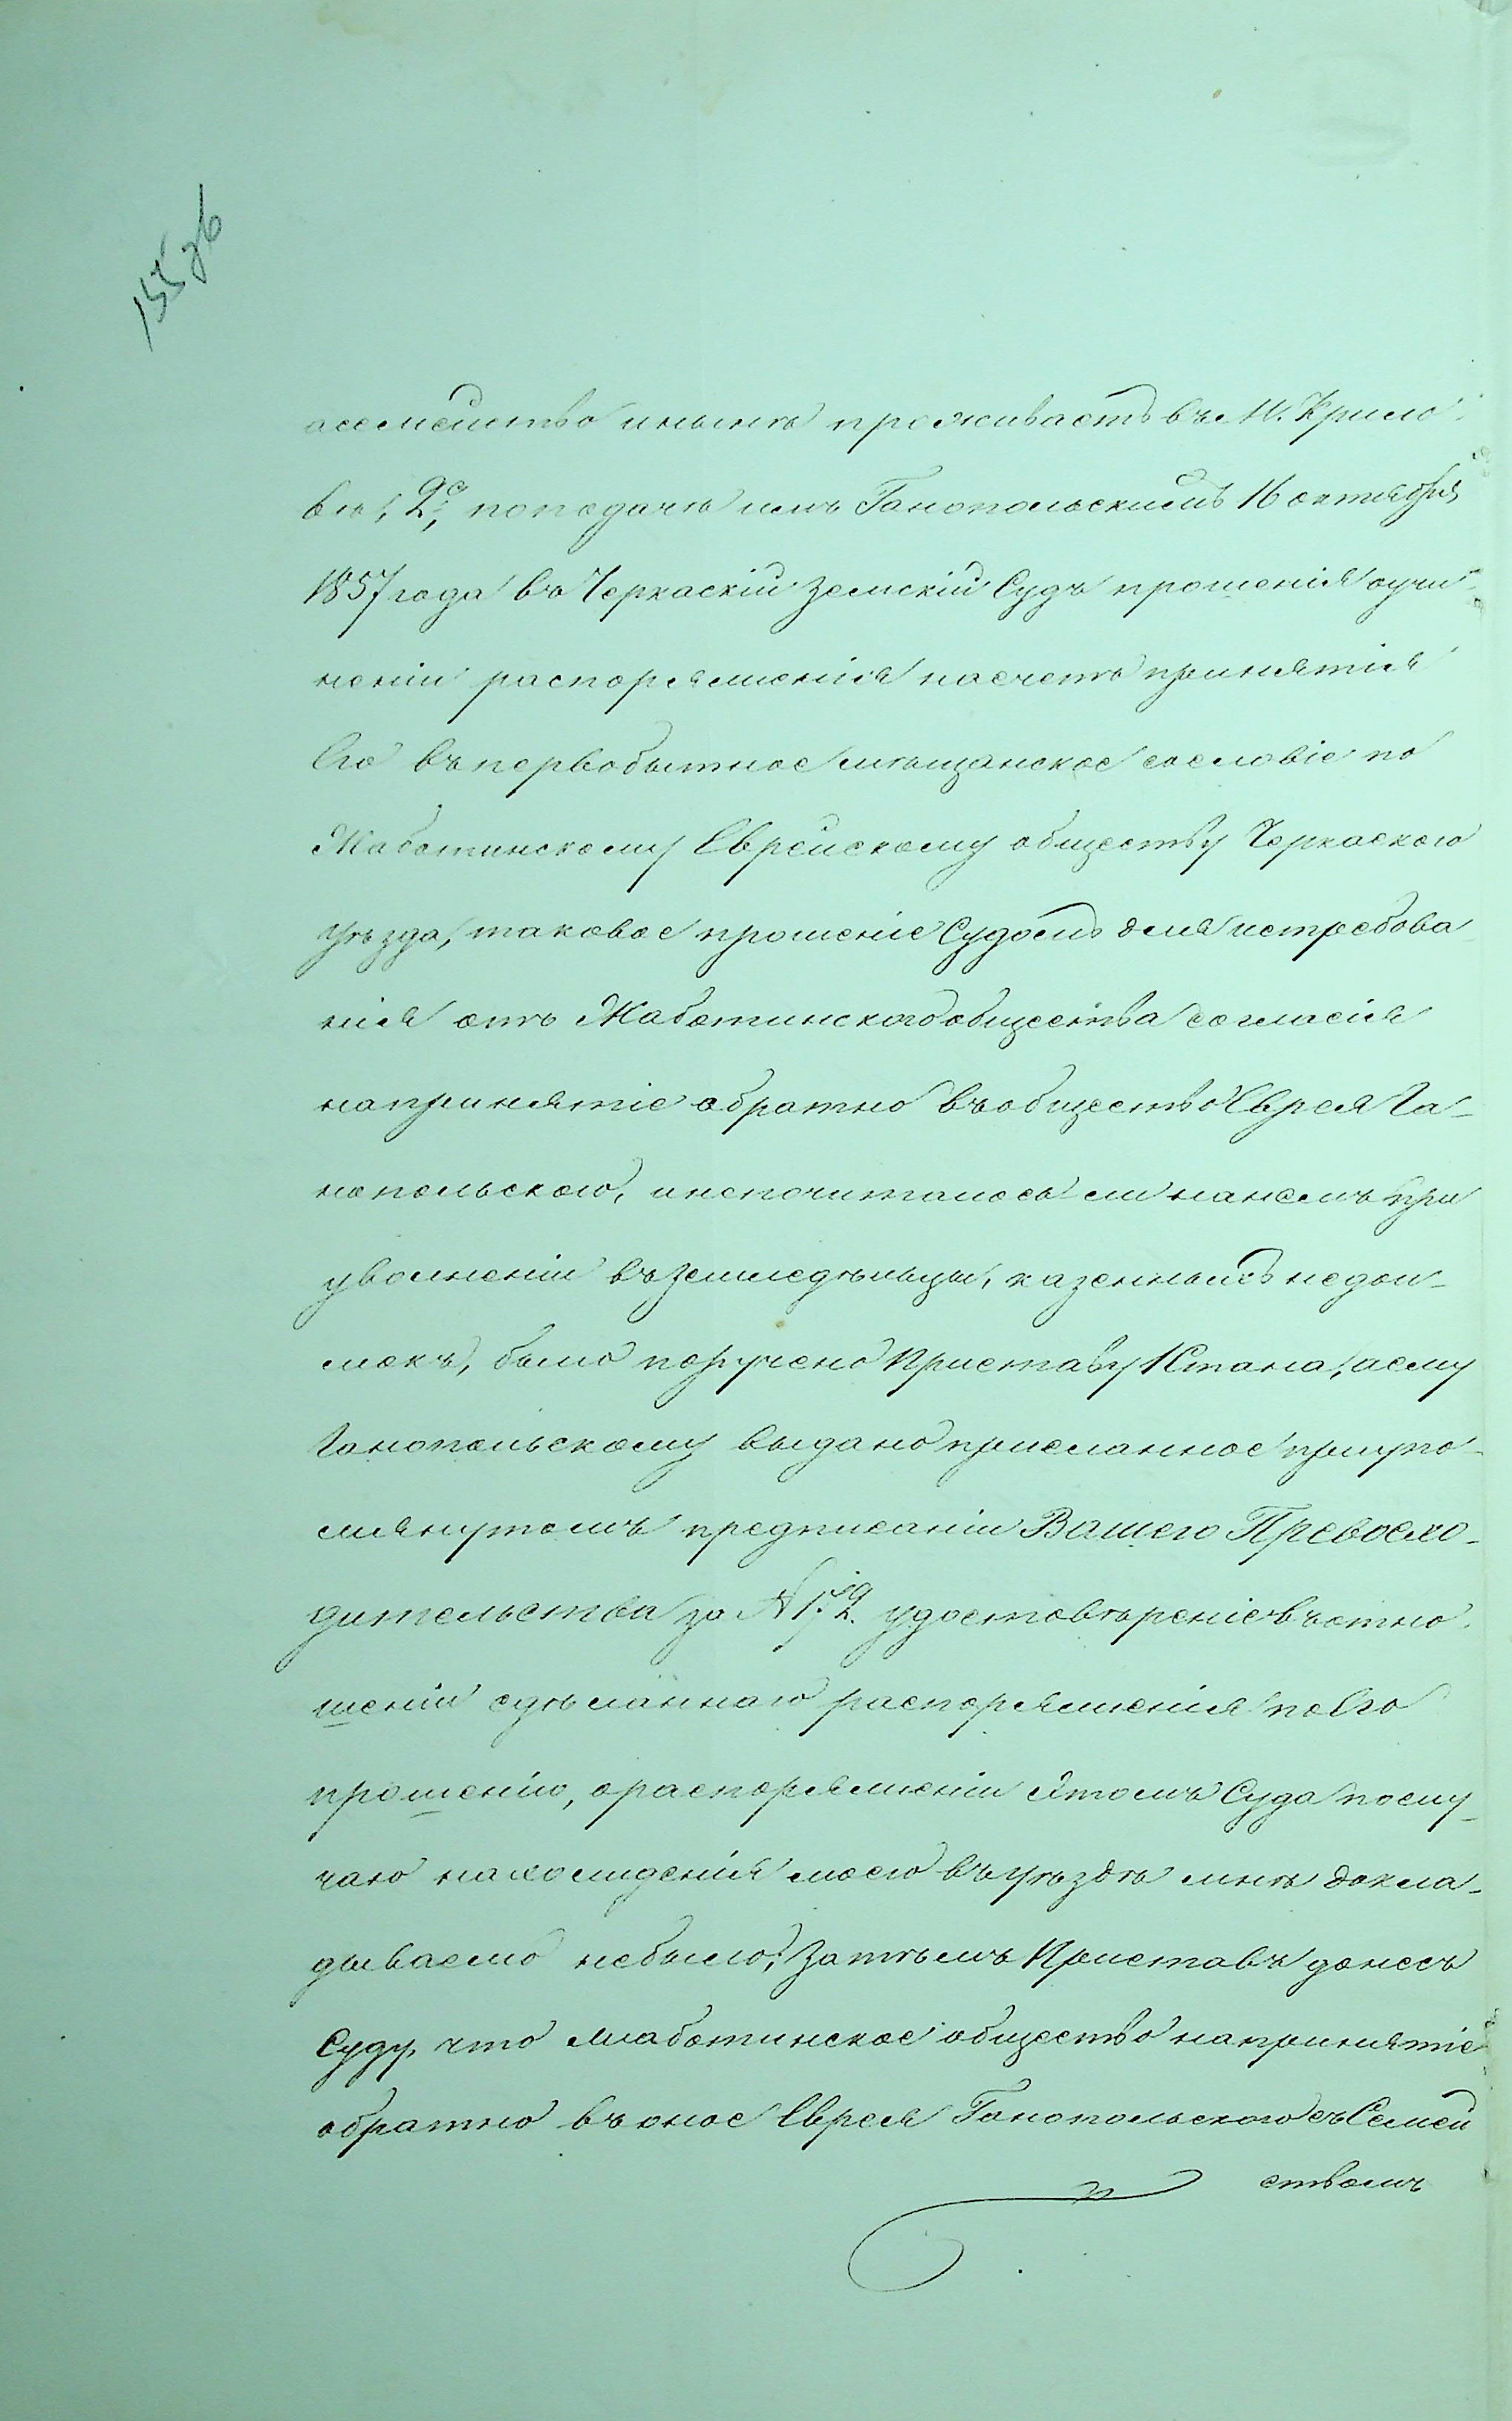 155 зв
асемейство инынѣ проживаетъ въ М. Крило
вѣ, 2е, поподачѣ имъ Ганопольскимъ 16 октября
1857 года въ Черкаскій Земскій Судъ прошенія оучи
неніи распоряженія насчетъ принятія
Его въ первобытное мѣщанское сословіе по
Жаботинскому Еврейскому обществу Черкаского
уѣзда, таковое прошеніе Судомъ для истребова
нія отъ Жаботинскогообщества согласія
напринятіе обратно въобщество Еврея Га-
нопольского, инепочиталось ли нанемъ при
увольненіи въ земледѣльцы, казенныхъ недои-
мокъ, было поручено Приставу 1 Стана, аему
Ганопольскому выдано присланное приупо-
мянутомъ предписаніи Вашего Превосхо-
дительства за № 172. удостовѣреніе въотно
шеніи сдѣланнаго распоряженія поЕго
прошенію, ораспоряженіи этомъ Суда послу-
чаю нахожденія моего въ уѣздѣ мнѣ докла-
дываемо небыло, Затѣмъ Приставъ донесъ
Суду, что Жаботинское общество напринятіе
обратно въ оное Еврея Ганопольского съ Семей
ствомъ